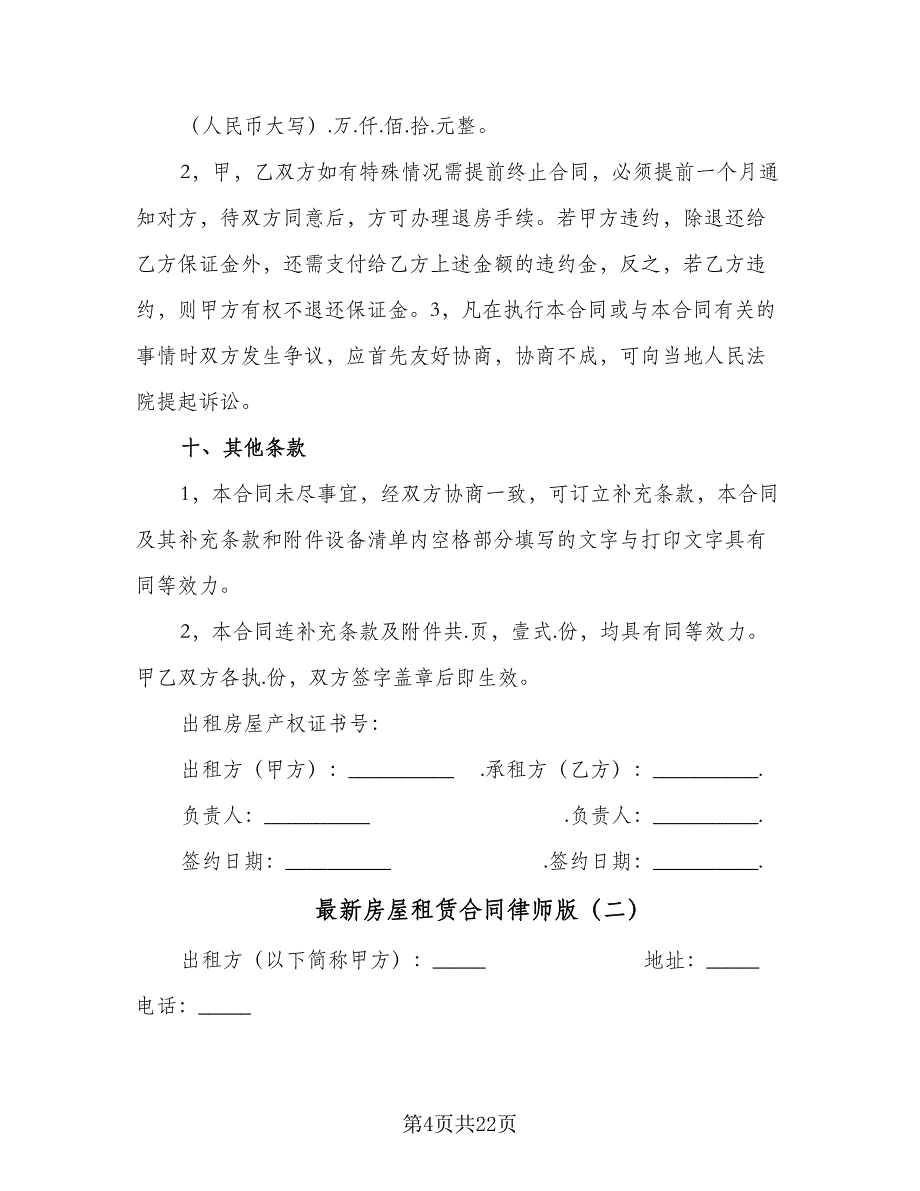 （人民币大写）.万.仟.佰.拾.元整。
2，甲，乙双方如有特殊情况需提前终止合同，必须提前一个月通
知对方，待双方同意后，方可办理退房手续。若甲方违约，除退还给
乙方保证金外，还需支付给乙方上述金额的违约金，反之，若乙方违
约，则甲方有权不退还保证金。3，凡在执行本合同或与本合同有关的
事情时双方发生争议，应首先友好协商，协商不成，可向当地人民法
院提起诉讼。
十、其他条款
1，本合同未尽事宜，经双方协商一致，可订立补充条款，本合同
及其补充条款和附件设备清单内空格部分填写的文字与打印文字具有
同等效力。
2，本合同连补充条款及附件共.页，壹式.份，均具有同等效力。
甲乙双方各执.份，双方签字盖章后即生效。
出租房屋产权证书号：
出租方（甲方）：__________ .承租方（乙方）：__________.
负责人：__________ .负责人：__________.
签约日期：__________ .签约日期：__________.
最新房屋租赁合同律师版（二）
出租方（以下简称甲方）：_____ 地址：_____
电话：_____
第4页共22页